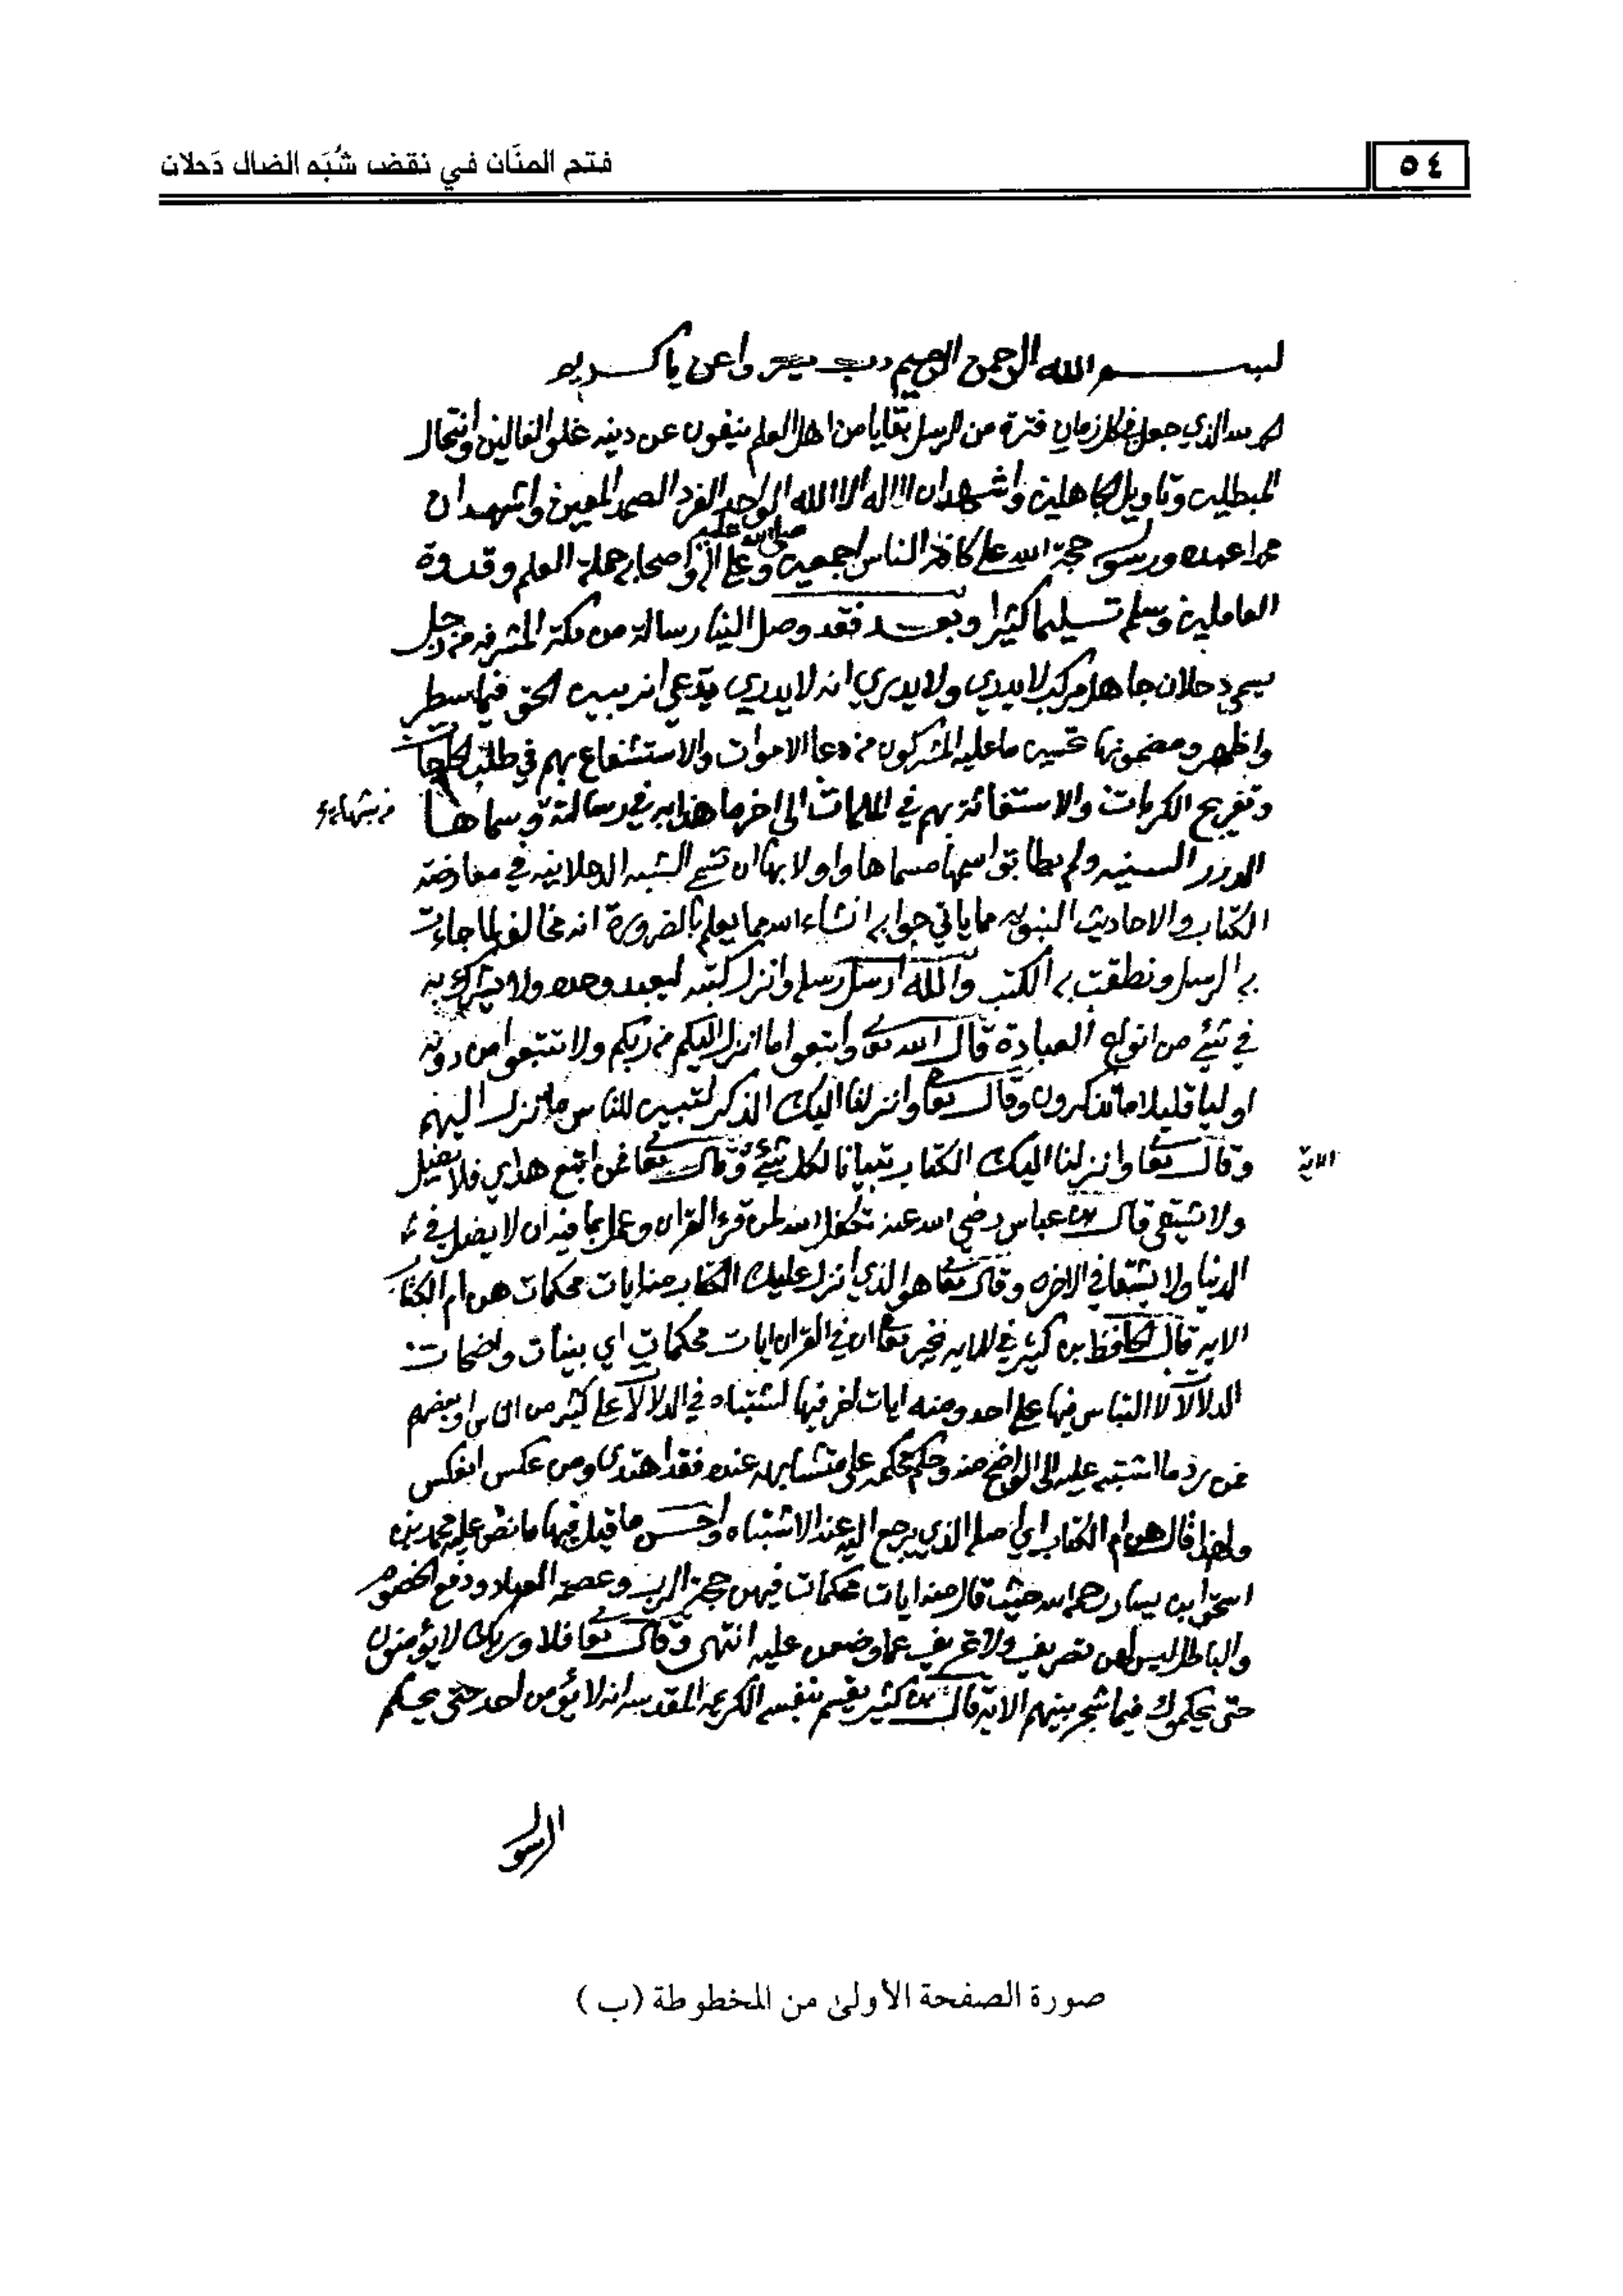 ٥٤
فتح المنَّان في نقض شُبَه الضال دَحلان
بسم الله الرحمن الرحيم رب يسر واعن يا كريم
الحمد لله الذي جعل في كل زمان فترة من الرسل بقايا من اهل العلم ينفون عن دينه غلو الغالين وانتحال
المبطلين وتاويل الجاهلين واشهد ان لا اله الا الله الواحد الفرد الصمد المعين واشهد ان
محمدا عبده ورسوله حجة الله على كافة الناس اجمعين صلى الله عليه وعلى اله واصحابه حملة العلم وقدوة
العاملين وسلم تسليما كثيرا وبعد فقد وصل الينا رسالة من مكة المشرفه من رجل
يسمى دحلان جاهل مركب لا يدري ولا يدري انه لا يدري يدعي انه يبين الحق فيما سطر
واظهر ومضمونها تحسين ما عليه المشركون من دعا الاموات والاستشفاع بهم في طلب الحاجات
وتفريج الكربات والاستغاثة بهم في الملمات الى اخر ما هذا به في رسالته وسماها
الدرر السنيه ولم يطابق اسمها مسماها واولا بها ان تسمى الشبه الدحلانيه في معارضة
الكتاب والاحاديث النبويه مما ياتي جوابه انشاء الله مما يعلم بالضرورة انه مخالف لما جاءت
به الرسل ونطقت به الكتب والله ارسل رسله وانزل كتبه ليعبد وحده ولا يشرك به
في شيء من انواع العبادة قال الله تعا واتبعوا ما انزل اليكم من ربكم ولا تتبعوا من دونه
اوليا قليلا ما تذكرون وقال تعا وانزلنا اليك الذكر لتبين للناس ما نزل اليهم
الاية
وقال تعا وانزلنا اليك الكتاب تبيانا لكل شيء وقال تعا فمن اتبع هداي فلا يضل
ولا يشقى قال بن عباس رضي الله عنه تكفل الله لمن قرء القران وعمل بما فيه ان لا يضل في
الدنيا ولا يشقا في الاخره وقال تعا هو الذي انزل عليك الكتاب منه ايات محكمات هن ام الكتاب
الايه قال الحافظ بن كثير في الايه يخبر تعا ان في القران ايات محكمات اي بينات واضحات
الدلالة لا التباس فيها على احد ومنه ايات اخر فيها اشتباه في الدلالة على كثير من الناس او بعضهم
فمن رد ما اشتبه عليه الى الواضح منه وحكم محكمه على متشابهه عنده فقد اهتدى ومن عكس انعكس
ولهذا قال هن ام الكتاب اي اصله الذي يرجع اليه عند الاشتباه واحسن ما قيل فيها ما نص عليه محمد بن
اسحق ابن يسار رحمه الله حيث قال منه ايات محكمات فيهن حجة الرب وعصمة العباد ودفع الخصوم
والباطل ليس لهن تصريف ولا تحريف عما وضعن عليه انتهى وقال تعا فلا وربك لا يؤمنون
حتى يحكموك فيما شجر بينهم الاية قال بن كثير يقسم بنفسه الكريمة المقدسه انه لا يؤمن احد حتى يحكم
الرسول
صورة الصفحة الأولىٰ من المخطوطة (ب)